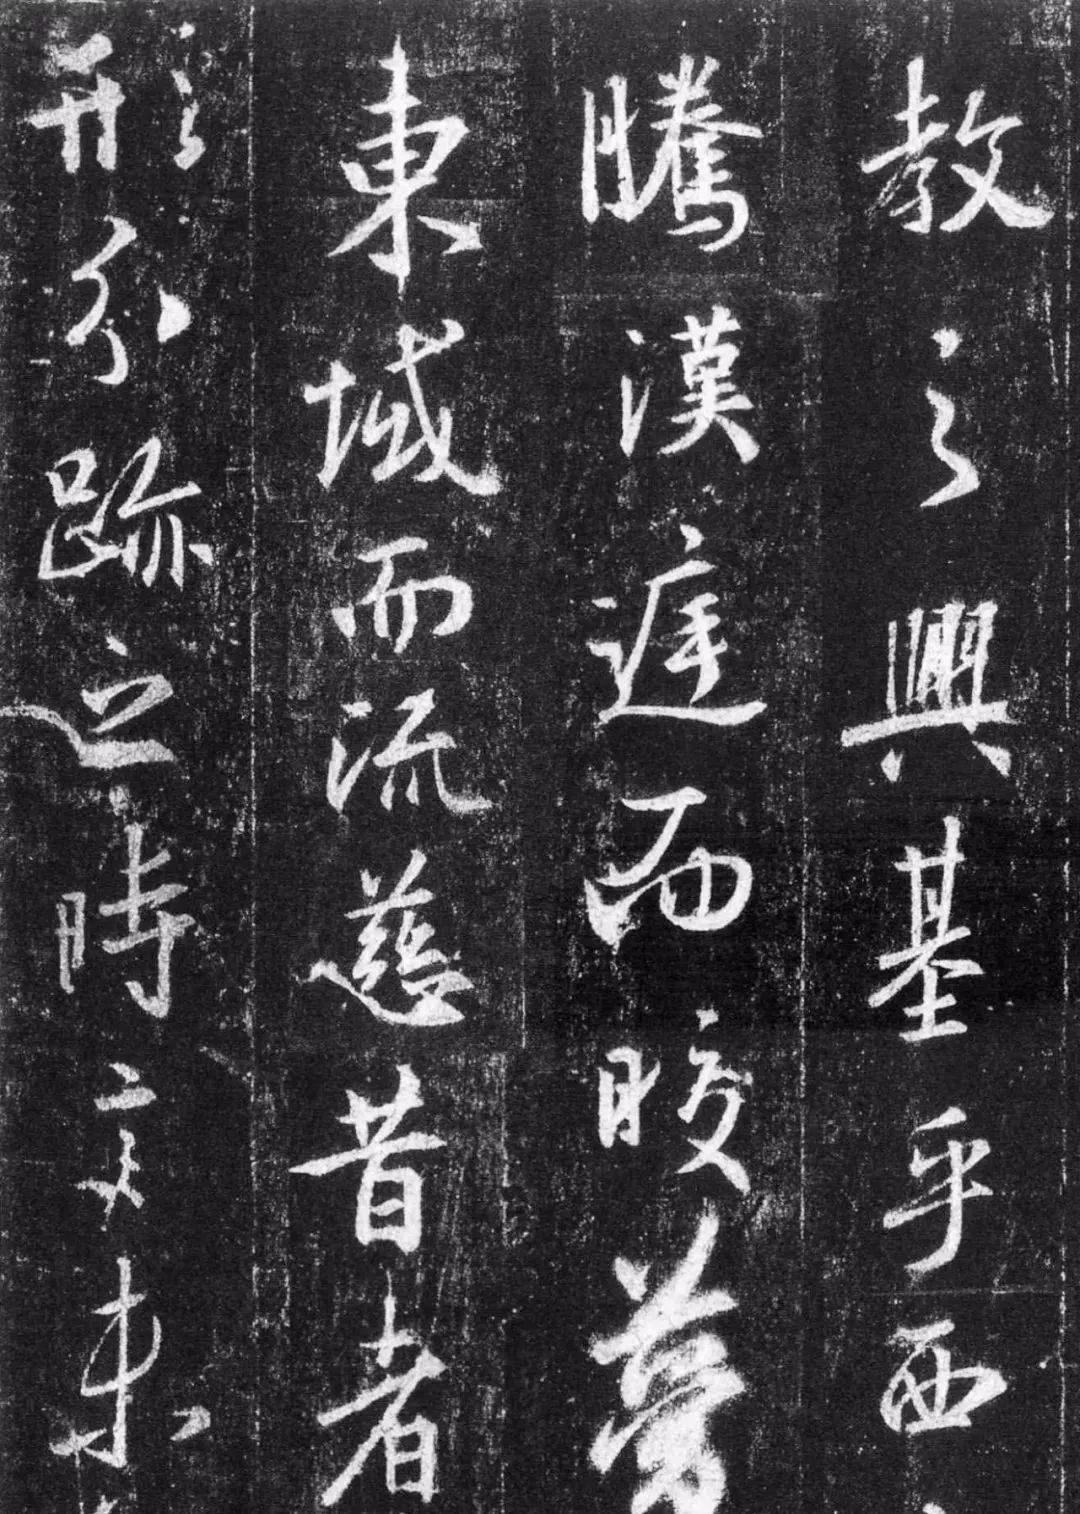 教之興基乎西
騰漢遅而皎夢
東域而流慈昔者
形分跡之時言未